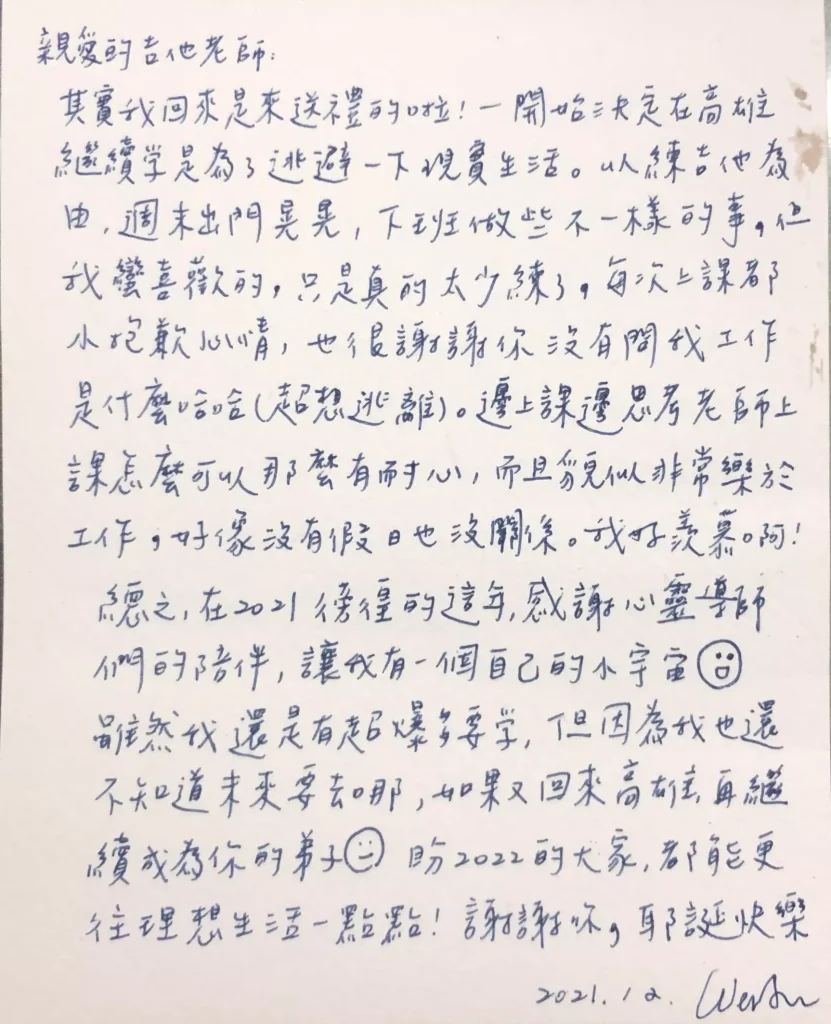 親愛的吉他老師:
其實我回來是來送禮的啦!一開始決定在高雄
繼續学是為了逃避一下現實生活。以練吉他為
由,週末出門晃晃,下班做些不一樣的事,但
我蠻喜歡的,只是真的太少練了,每次上課都
小抱歉心情,也很謝謝你沒有問我工作
是什麼哈哈(超想逃離)。邊上課邊思考老師上
課怎麼可以那麼有耐心,而且貌似非常樂於
工作,好像沒有假日也沒關係。我好羨慕啊!
總之,在2021徬徨的這年,感謝心靈導師
們的陪伴,讓我有一個自己的小宇宙
雖然我還是有超爆多要学,但因為我也還
不知道未來要去哪,如果又回來高雄再繼
續成為你的弟子 盼2022的大家,都能更
往理想生活一點點!謝謝你,耶誕快樂
2021.12.